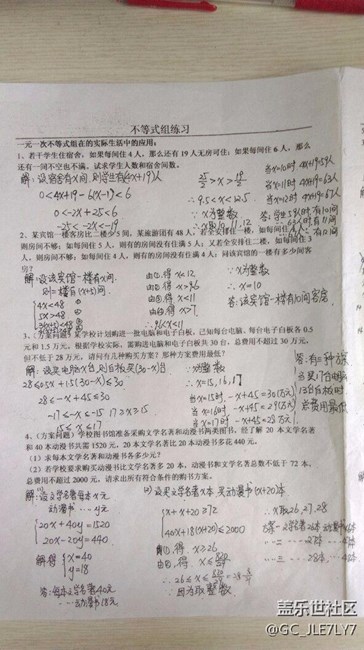 不等式组练习
一元一次不等式组在的实际生活中的应用:
1、若干学生住宿舍,如果每间住4人,那么还有19人无房可住;如果每间住6人,那么
还有一间不空也不满,试求学生人数和宿舍间数。
解:设宿舍有x间,则学生有(4x+19)人
0<4x+19-6(x-1)<6
0<-2x+25<6
-25<-2x<-19
∴9.5<x<12.5
∵x为整数
当x=10时 4x+19=59人
当x=11时 4x+19=63人
当x=12时 4x+19=67人
2、某宾馆一楼客房比二楼少5间,某旅游团有48人,若全安排住一楼,
则房间不够;如每间住5人,则有的房间没有住满5人;若全安排住二楼,如每间住3
人,则房间不够;如每间住4人,则有的房间没有住满4人;问该宾馆一楼有多少间客
房?
解:设该宾馆一楼有x间
则二楼有(x+5)间
4x<48 ①
5x>48 ②
由①得 x<12
由②得 x>9.6
由③得 x<11
由④得 x>7
∵x为整数
∴x=10
答:该宾馆一楼有10间客房.
3、(方案问题)某学校计划购进一批电脑和电子白板,已知每台电脑、每台电子白板各0.5
元和1.5万元,根据学校实际,需购进电脑和电子白板共30台,总费用不超过30万元,
但不低于28万元,请问有几种购买方案?那种方案费用最低?
28≤0.5x+1.5(30-x)≤30
28≤-x+45≤30
-17≤-x≤-15
15≤x≤17
∵x为整数
∴x=15,16,17
当x=15时 -x+45=30(万元)
当x=16时 -x+45=29(万元)
当x=17时 -x+45=28(万元)
4、(方案问题)学校图书馆准备采购文学名著和动漫书两类图书。经了解20本文学名著
和40本动漫书共需1520元,20本文学名著比20本动漫书多花440元。
(1)求每本文学名著和动漫书各多少元?
(2)若学校要求购买动漫书比文学名著多20本,动漫书和文学名著总数不低于72本,
总费用不超过2000元,请求出所有符合条件的购书方案。
解:设文学名著每本x元
动漫书‥‥y元
20x+40y=1520
20x-20y=440
解得 x=40
y=18
答:每本文学名著40元
‥‥动漫书18元.
(2)设买文学名著x本 买动漫书(x+20)本
x+x+20≥72
40x+18(x+20)≤2000
由①得 x≥26
∴x取26,27,28
盖乐世社区
@GC_JLE7LY7